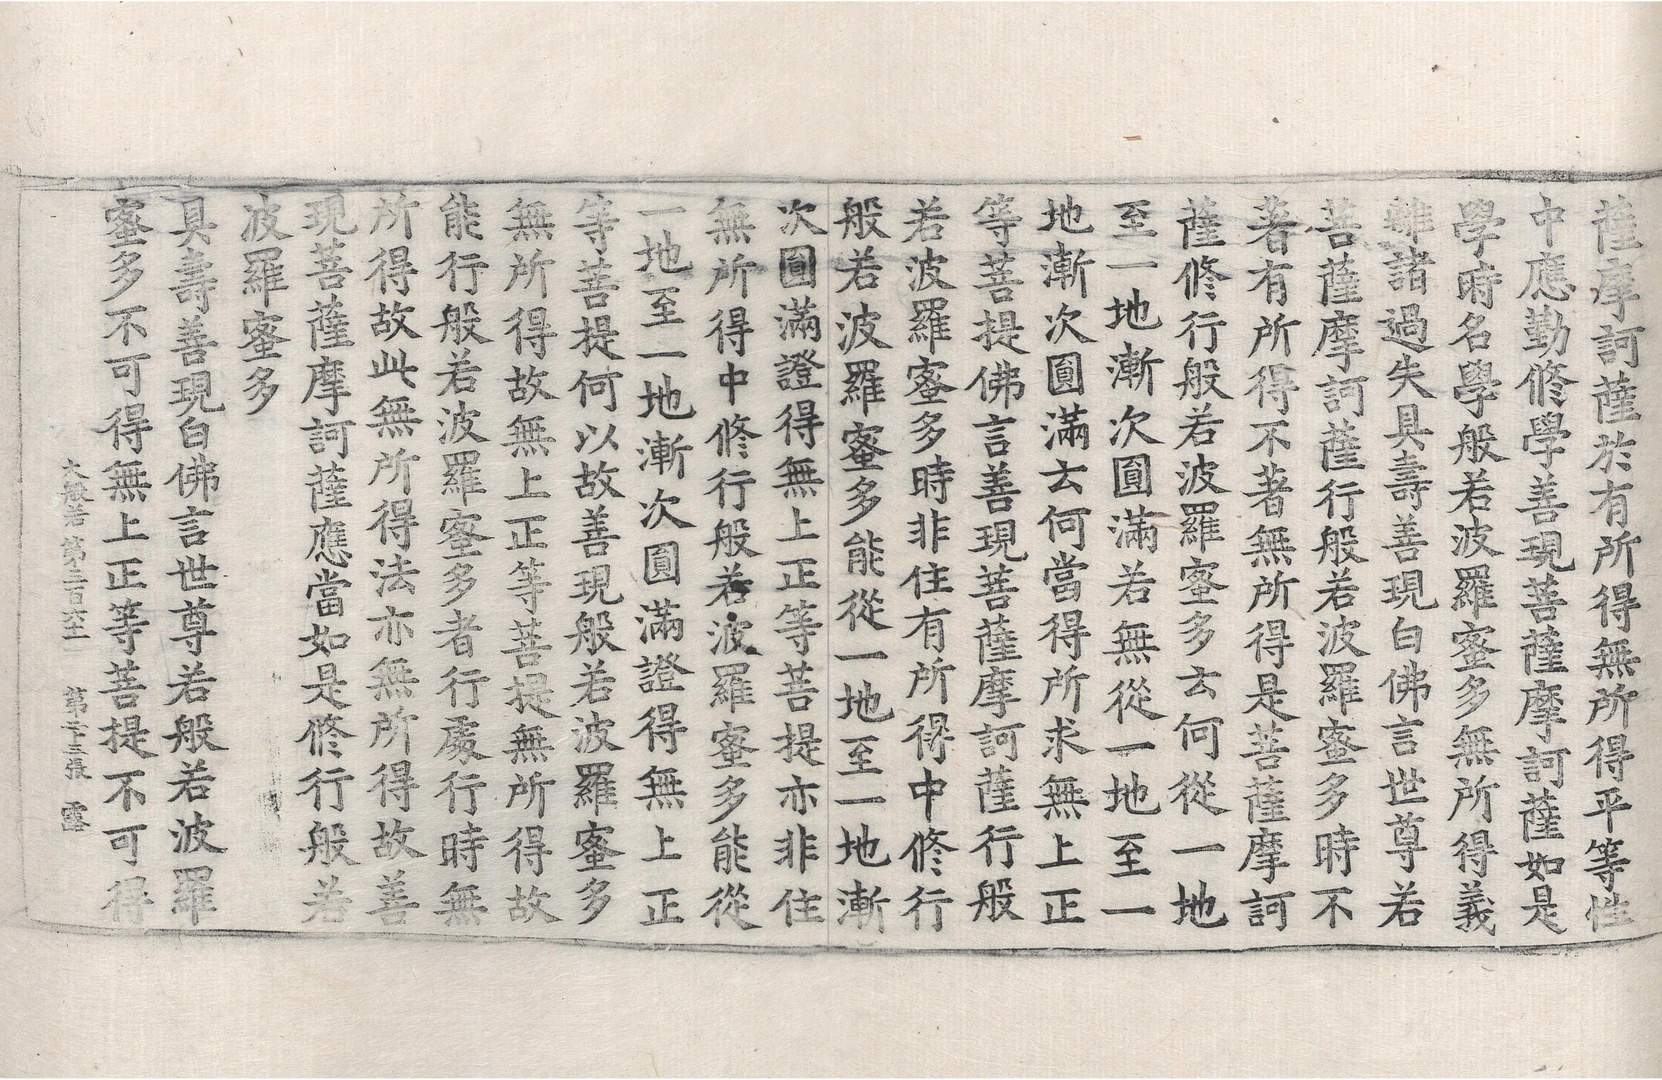 薩摩訶薩於有所得無所得平等性
中應勤修學善現菩薩摩訶薩如是
學時名學般若波羅蜜多無所得義
離諸過失具壽善現白佛言世尊若
菩薩摩訶薩行般若波羅蜜多時不
著有所得不著無所得是菩薩摩訶
薩修行般若波羅蜜多云何從一地
至一地漸次圓滿若無從一地至一
地漸次圓滿云何當得所求無上正
等菩提佛言善現菩薩摩訶薩行般
若波羅蜜多時非住有所得中修行
般若波羅蜜多能從一地至一地漸
次圓滿證得無上正等菩提亦非住
無所得中修行般若波羅蜜多能從
一地至一地漸次圓滿證得無上正
等菩提何以故善現般若波羅蜜多
無所得故無上正等菩提無所得故
能行般若波羅蜜多者行處行時無
所得故此無所得法亦無所得故善
現菩薩摩訶薩應當如是修行般若
波羅蜜多
具壽善現白佛言世尊若般若波羅
蜜多不可得無上正等菩提不可得
大般若第三百六十二 第二十三張 露